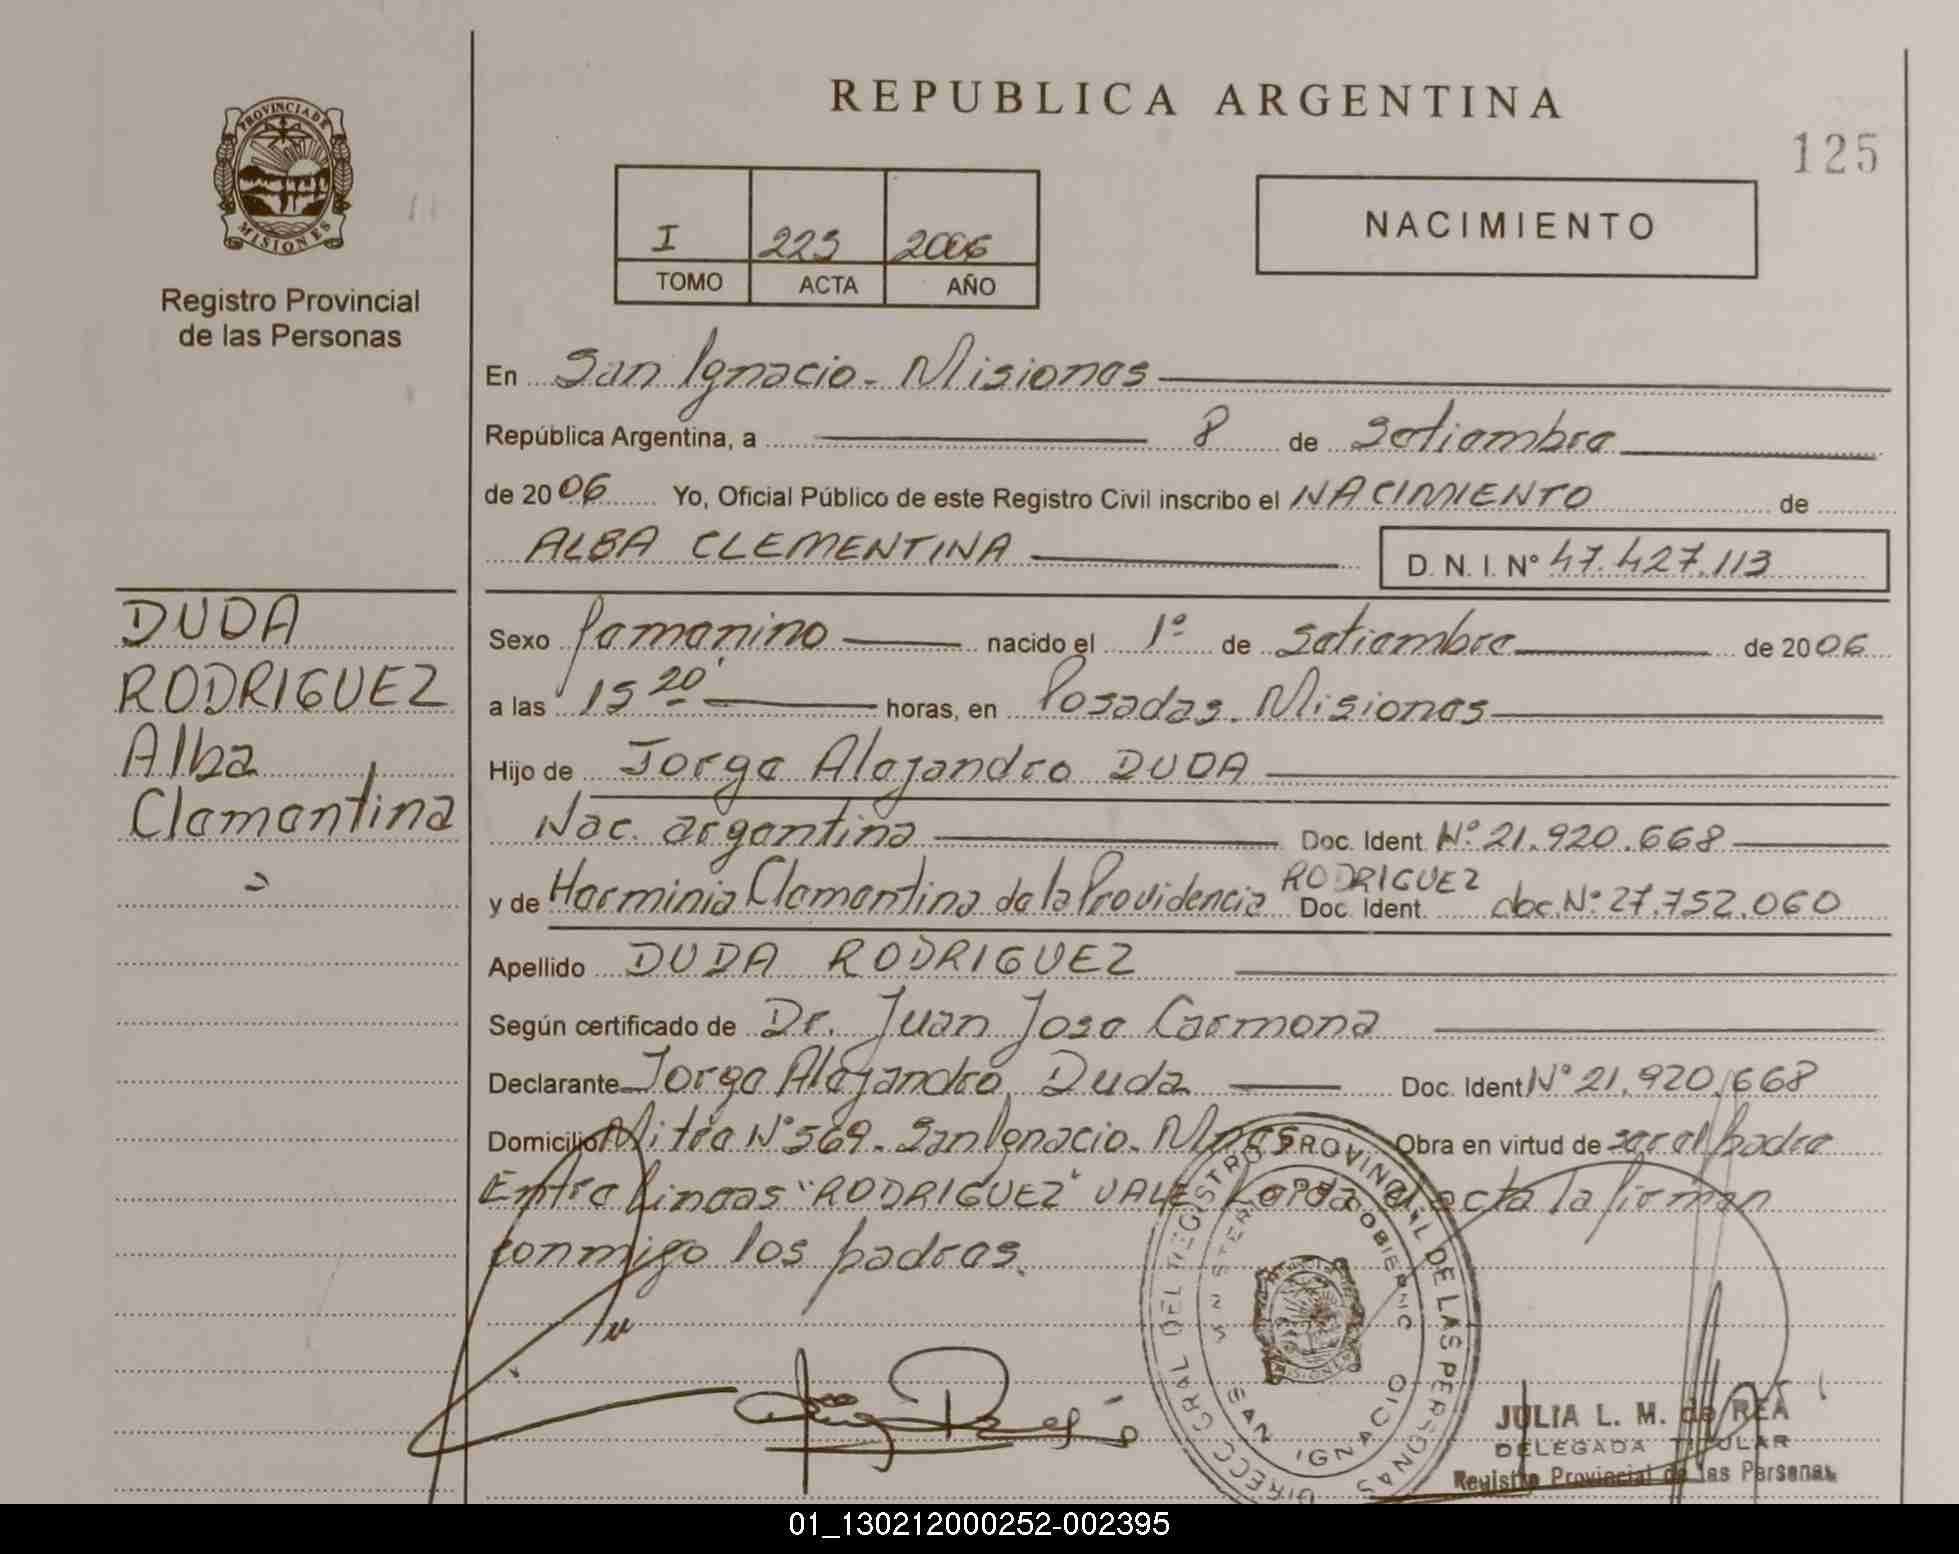 REPUBLICA ARGENTINA
125
PROVINCIA DE
MISIONES
Registro Provincial
de las Personas
I 223 2006
TOMO ACTA AÑO
NACIMIENTO
En San Ignacio - Misiones
República Argentina, a 8 de Setiembre
de 2006 Yo, Oficial Público de este Registro Civil inscribo el NACIMIENTO de
ALBA CLEMENTINA D. N. I. N° 47.427.113
DUDA
RODRIGUEZ
Alba
Clementina
Sexo femenino nacido el 1° de Setiembre de 2006
a las 15 20' horas, en Posadas. Misiones
Hijo de Jorge Alejandro DUDA
Nac. argentina Doc. Ident. N° 21.920.668
y de Herminia Clementina de la Providencia RODRIGUEZ Doc. Ident. doc. N° 27.752.060
Apellido DUDA RODRIGUEZ
Según certificado de Dr. Juan Jose Carmona
Declarante Jorge Alejandro Duda Doc. Ident N° 21.920.668
Domicilio Mitre N° 569. San Ignacio. Mnes Obra en virtud de ser el padre
Entre lineas "RODRIGUEZ" VALE Leida el acta la firman
conmigo los padres.
DIRECC GRAL DEL REGISTRO PROVINCIAL DE LAS PERSONAS
MINISTERIO DE GOBIERNO
SAN IGNACIO
JULIA L. M. de REA
DELEGADA TITULAR
Registro Provincial de las Personas
01_130212000252-002395